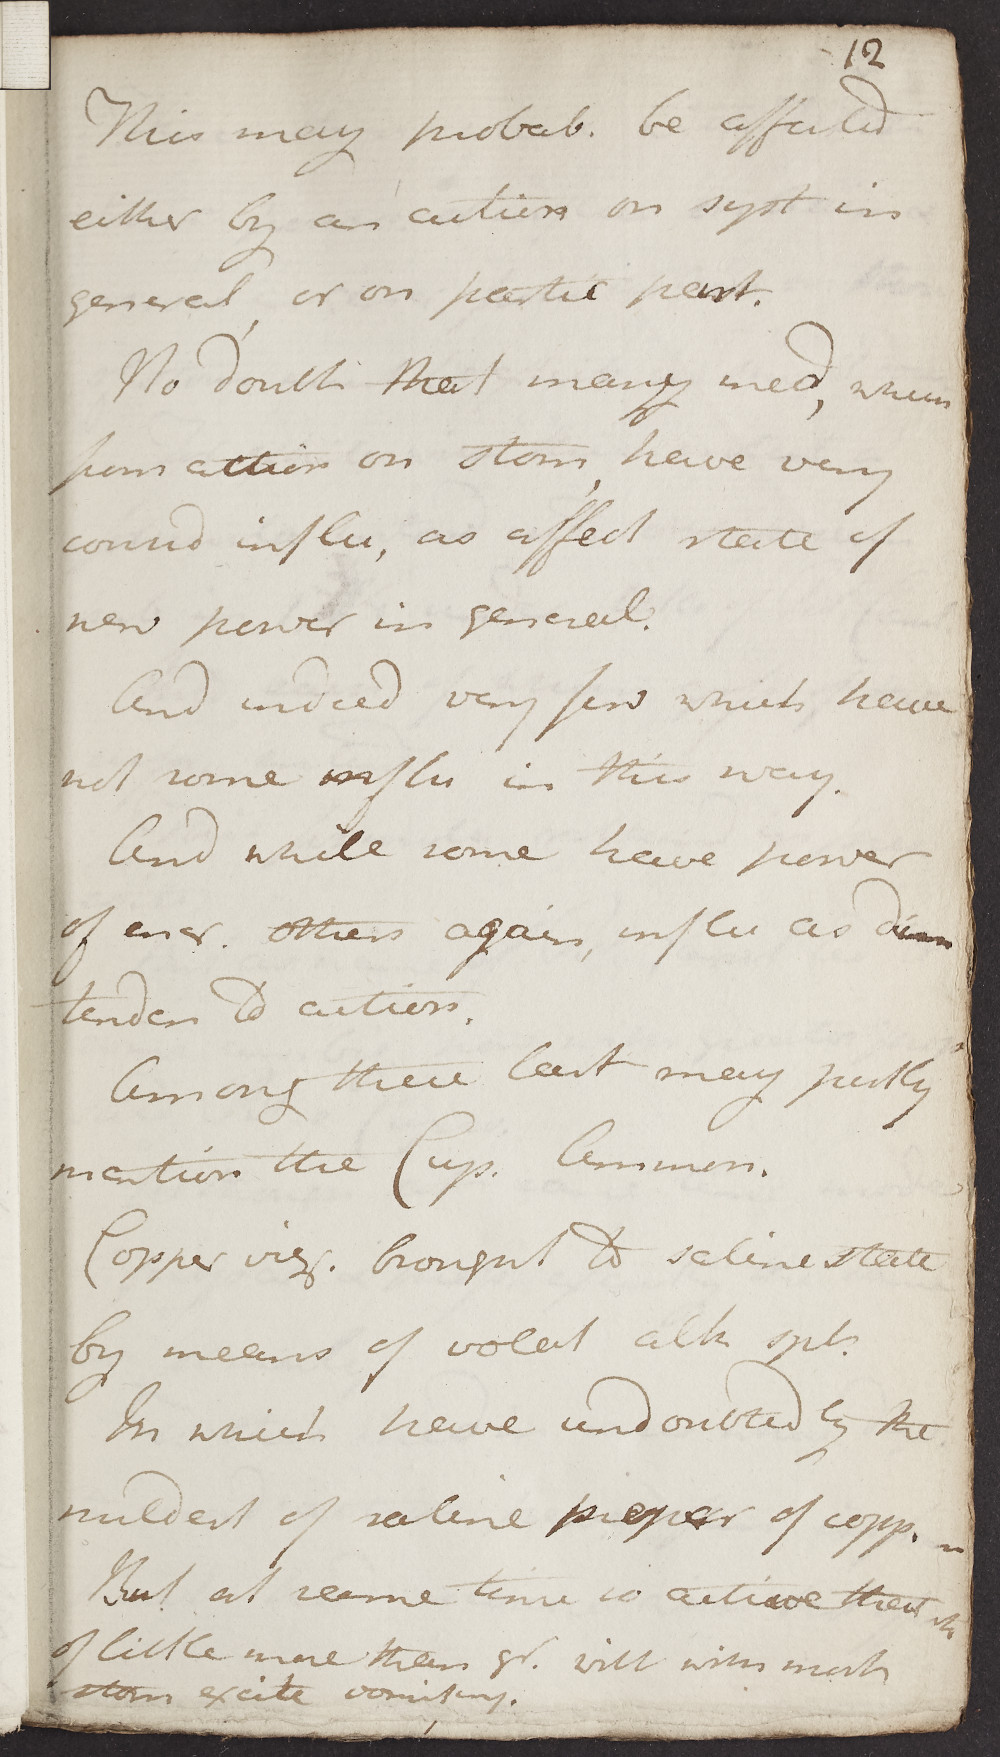 12
This may probab. be affected
either by an action on syst in
general, or on partic part.
No doubt that many med, when
from action on stom, have very
consid influ, as affect state of
nerv power in general.
And indeed very few which have
not some influ in this way.
And while some have power
of incr. others again, influ as dimn
tenden to action.
Among these last may justly
mention the Cup. Ammon.
Copper viz. brought to saline state
by means of volat alk spt.
In which have undoubtedly the
mildest of saline prepar of copp.
But at same time so active that
of little more than gr. will with most
stom excite vomiting.